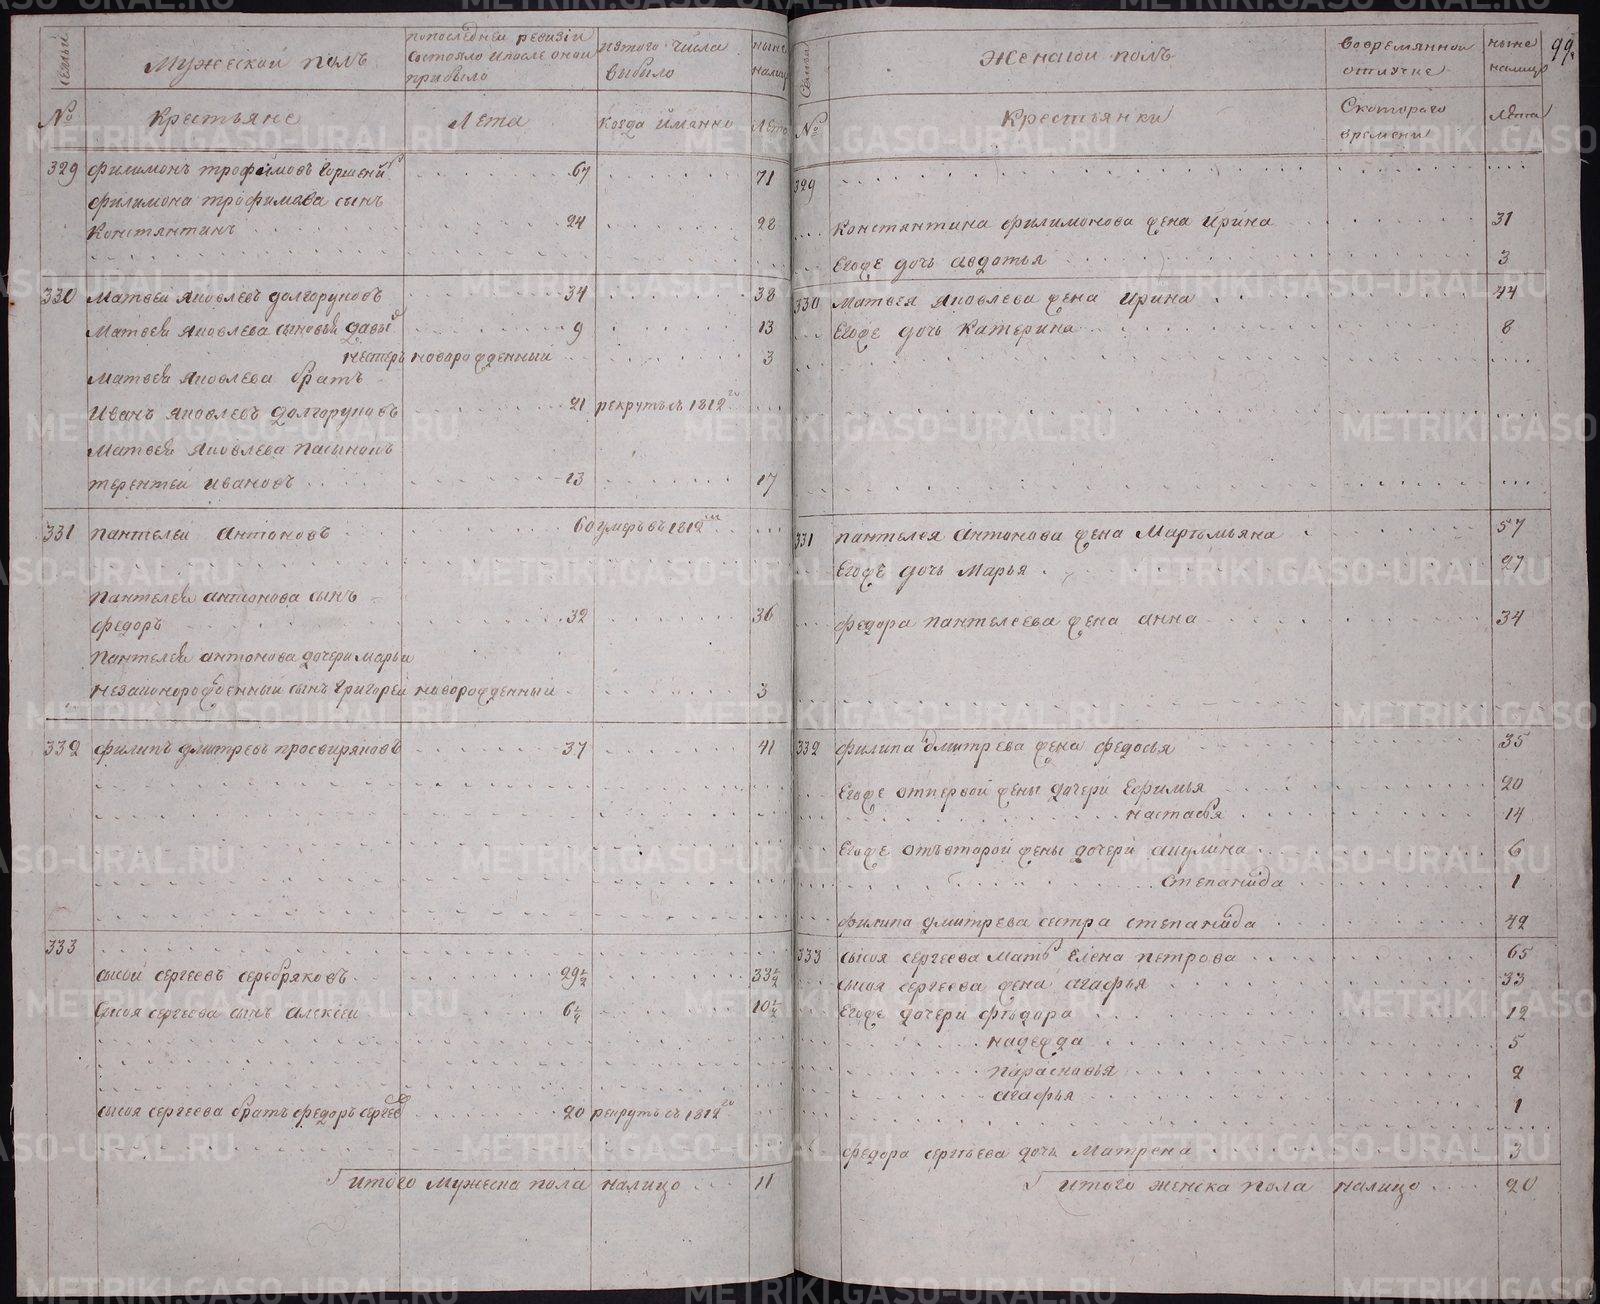 Семьи
Мужеской полъ
попоследней ревизiи
состояло ипосле оной
прибыло
изтого числа
выбыло
ныне
налицо
№
Крестьяне
Лета
Когда имянно
Лета
329 Филимонъ трофимовъ 67 71
Филимона трофимова сынъ
Константинъ 24 28
330 Матвей Яковлевъ долгоруковъ 34 38
Матвея Яковлева сыновья давыд 9 13
нестеръ новорожденный 3
Матвея Яковлева братъ
Иванъ Яковлевъ долгоруковъ 21 рекрутъ съ 1812го
Матвея Яковлева пасынокъ
терентей ивановъ 13 17
331 пантелей антоновъ 60 умеръ въ 1812м
Пантелея антонова сынъ
федоръ 32 36
Пантелея антонова дочери марьи
незаконорожденный сынъ григорей новорожденный 3
332 филипъ дмитревъ просвиряковъ 37 41
333
сысой сергеевъ серебряковъ 29½ 33½
Сысоя сергеева сынъ алексей 6½ 10½
сысоя сергеева братъ федоръ сергеев 20 рекрутъ съ 1812го
итого мужеска пола налицо 11
99
Семьи
Женской полъ
вовремянной
отлучке
ныне
налицо
№
Крестьянки
Скоторого
времени
Лета
329
Константина филимонова жена Ирина 31
Егоже дочь авдотья 3
330 Матвея Яковлева жена Ирина 44
Егоже дочь Катерина 8
331 пантелея антонова жена Мартемьяна 57
Егоже дочь Марья 27
федора пантелеева жена анна 34
332 филипа дмитрева жена федосья 35
Егоже отпервой жены дочери Ефимья 20
настасья 14
Егоже отвторой жены дочери акулина 6
степанида 1
филипа дмитрева сестра степанида 42
333 сысоя сергеева мать Елена петрова 65
сысоя сергеева жена агафья 33
Егоже дочери федора 12
надежда 5
парасковья 2
агафья 1
федора сергеева дочь матрена 3
итого женска пола налицо 20
METRIKI.GASO-URAL.RU